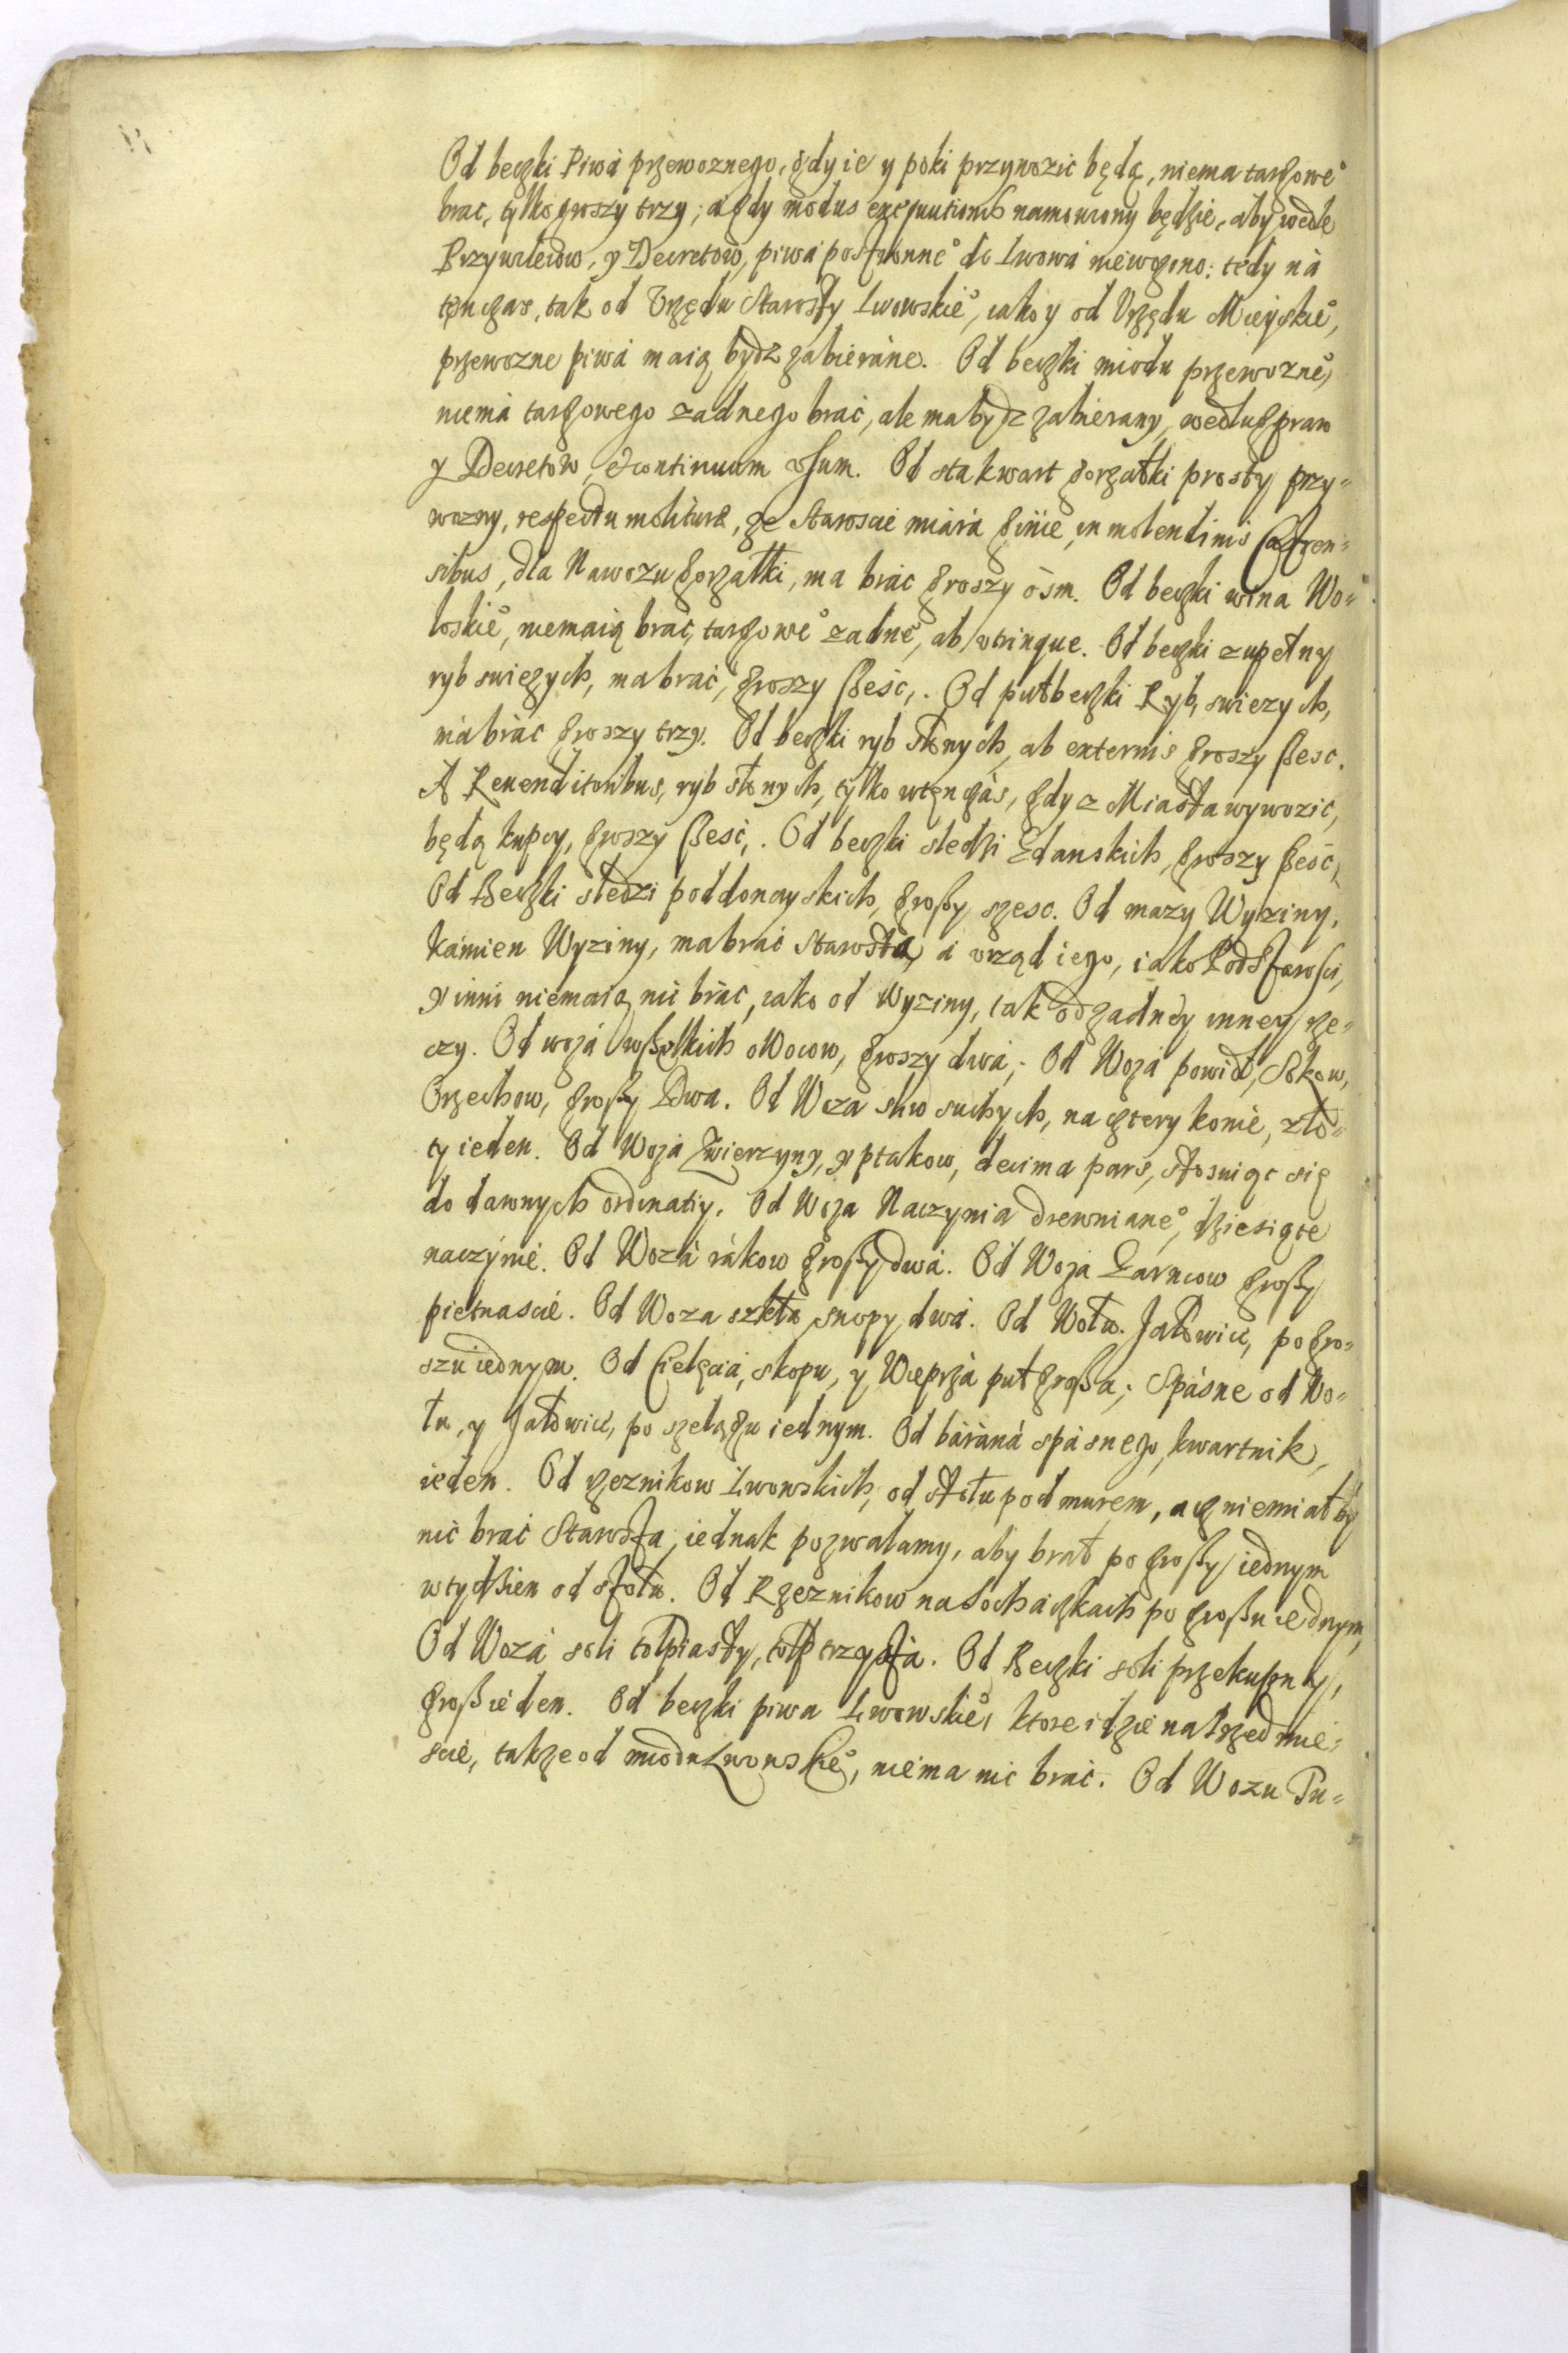 Od beczki Piwá przewoznego, gdy ie y poki przynozic będą, niema targowe°
brac, tylko groszy trzy; a gdy modus exequutionis namowiony będzie, aby wedle
Przywileiow, y Decretow, piwá postronne° do Lwowá niewożono: tedy ná
tęnczas, tak od Vrzędu Starosty Lwowskie°, iako y od Vrzędu Mieyskie°,
przewozne piwá maią bydz zabieráne. Od beczki miodu przewozne°,
niemá targowego zadnego brać, ale ma bydz zabierany, według praw
y Decretow, et continuum usum. Od sta kwart gorzałki prosty przy=
wozny, respectu molituræ, ze Staroscie miárá ginie, in molendinis Castren=
sibus, dla Nawozu gorzałki, ma brác groszy ósm. Od beczki wina Wo=
łoskie°, niemaią brać, targowe° zadne°, ab utrinque. Od beczki zupełny
ryb swiezych, ma brać, groszy ßeść,. Od pułbeczki Ryb, swiezych,
má brác groszy trzy. Od beczki ryb słonych, ab externis groszy ßesc.
A Reuenditoribus, ryb słonych, tylko wtęnczás, gdy z Miasta wywozic,
będą kupcy, groszy ßeść,. Od beczki sledzi Gdanskich, groszy ßeść,
Od Beczki sledzi poddonayskich, großy szesc. Od mazy Wyziny,
kámien Wyziny, ma brać Starosta, á vrząd iego, iako Podstarości,
y inni niemaią nic brác, iako od Wyziny, tak od zadnéy inney rze=
czy. Od wozá wßelkich oWocow, groszy dwá,. Od Wozá powidł, Sokow,
Orzechow, großy Dwa. Od Woza sliw suchych, na cztery konie, zło=
ty ieden. Od Wozá Zwierzyny, y ptakow, decima pars, stosuiąc się
do dawnych ordinatiy. Od Woza Naczynia drewniane°, dziesiąte
naczynié. Od Wozá rákow großy dwá. Od Wozá Garncow großy
pietnascié. Od Woza szkła snopy dwá. Od Wołu. Jałowicé, po gro=
szu iednym. Od Cielęciá, skopu, y Wieprzá puł großa,. Spásne od Wo=
łu, y Jałowicé, po szelągu iednym. Od báráná spásnego, kwartnik,
ieden. Od rzeznikow Lwowskich, od stołu pod murem, acz niemiał by
nic brać Starosta, iednak pozwalamy, aby brał po großy iednym
w tydźien od stołu. Od Rzeznikow na Sochaczkach po großu iednym,
Od Wozá soli tołpiasty, tołp trzystá. Od Beczki soli przekupny,
groß ieden. Od beczki piwa Lwowskie°, ktore idzie na Przedmie=
scié, takze od miodu Lwowskie°, niema nic brać. Od Wozu Pu=